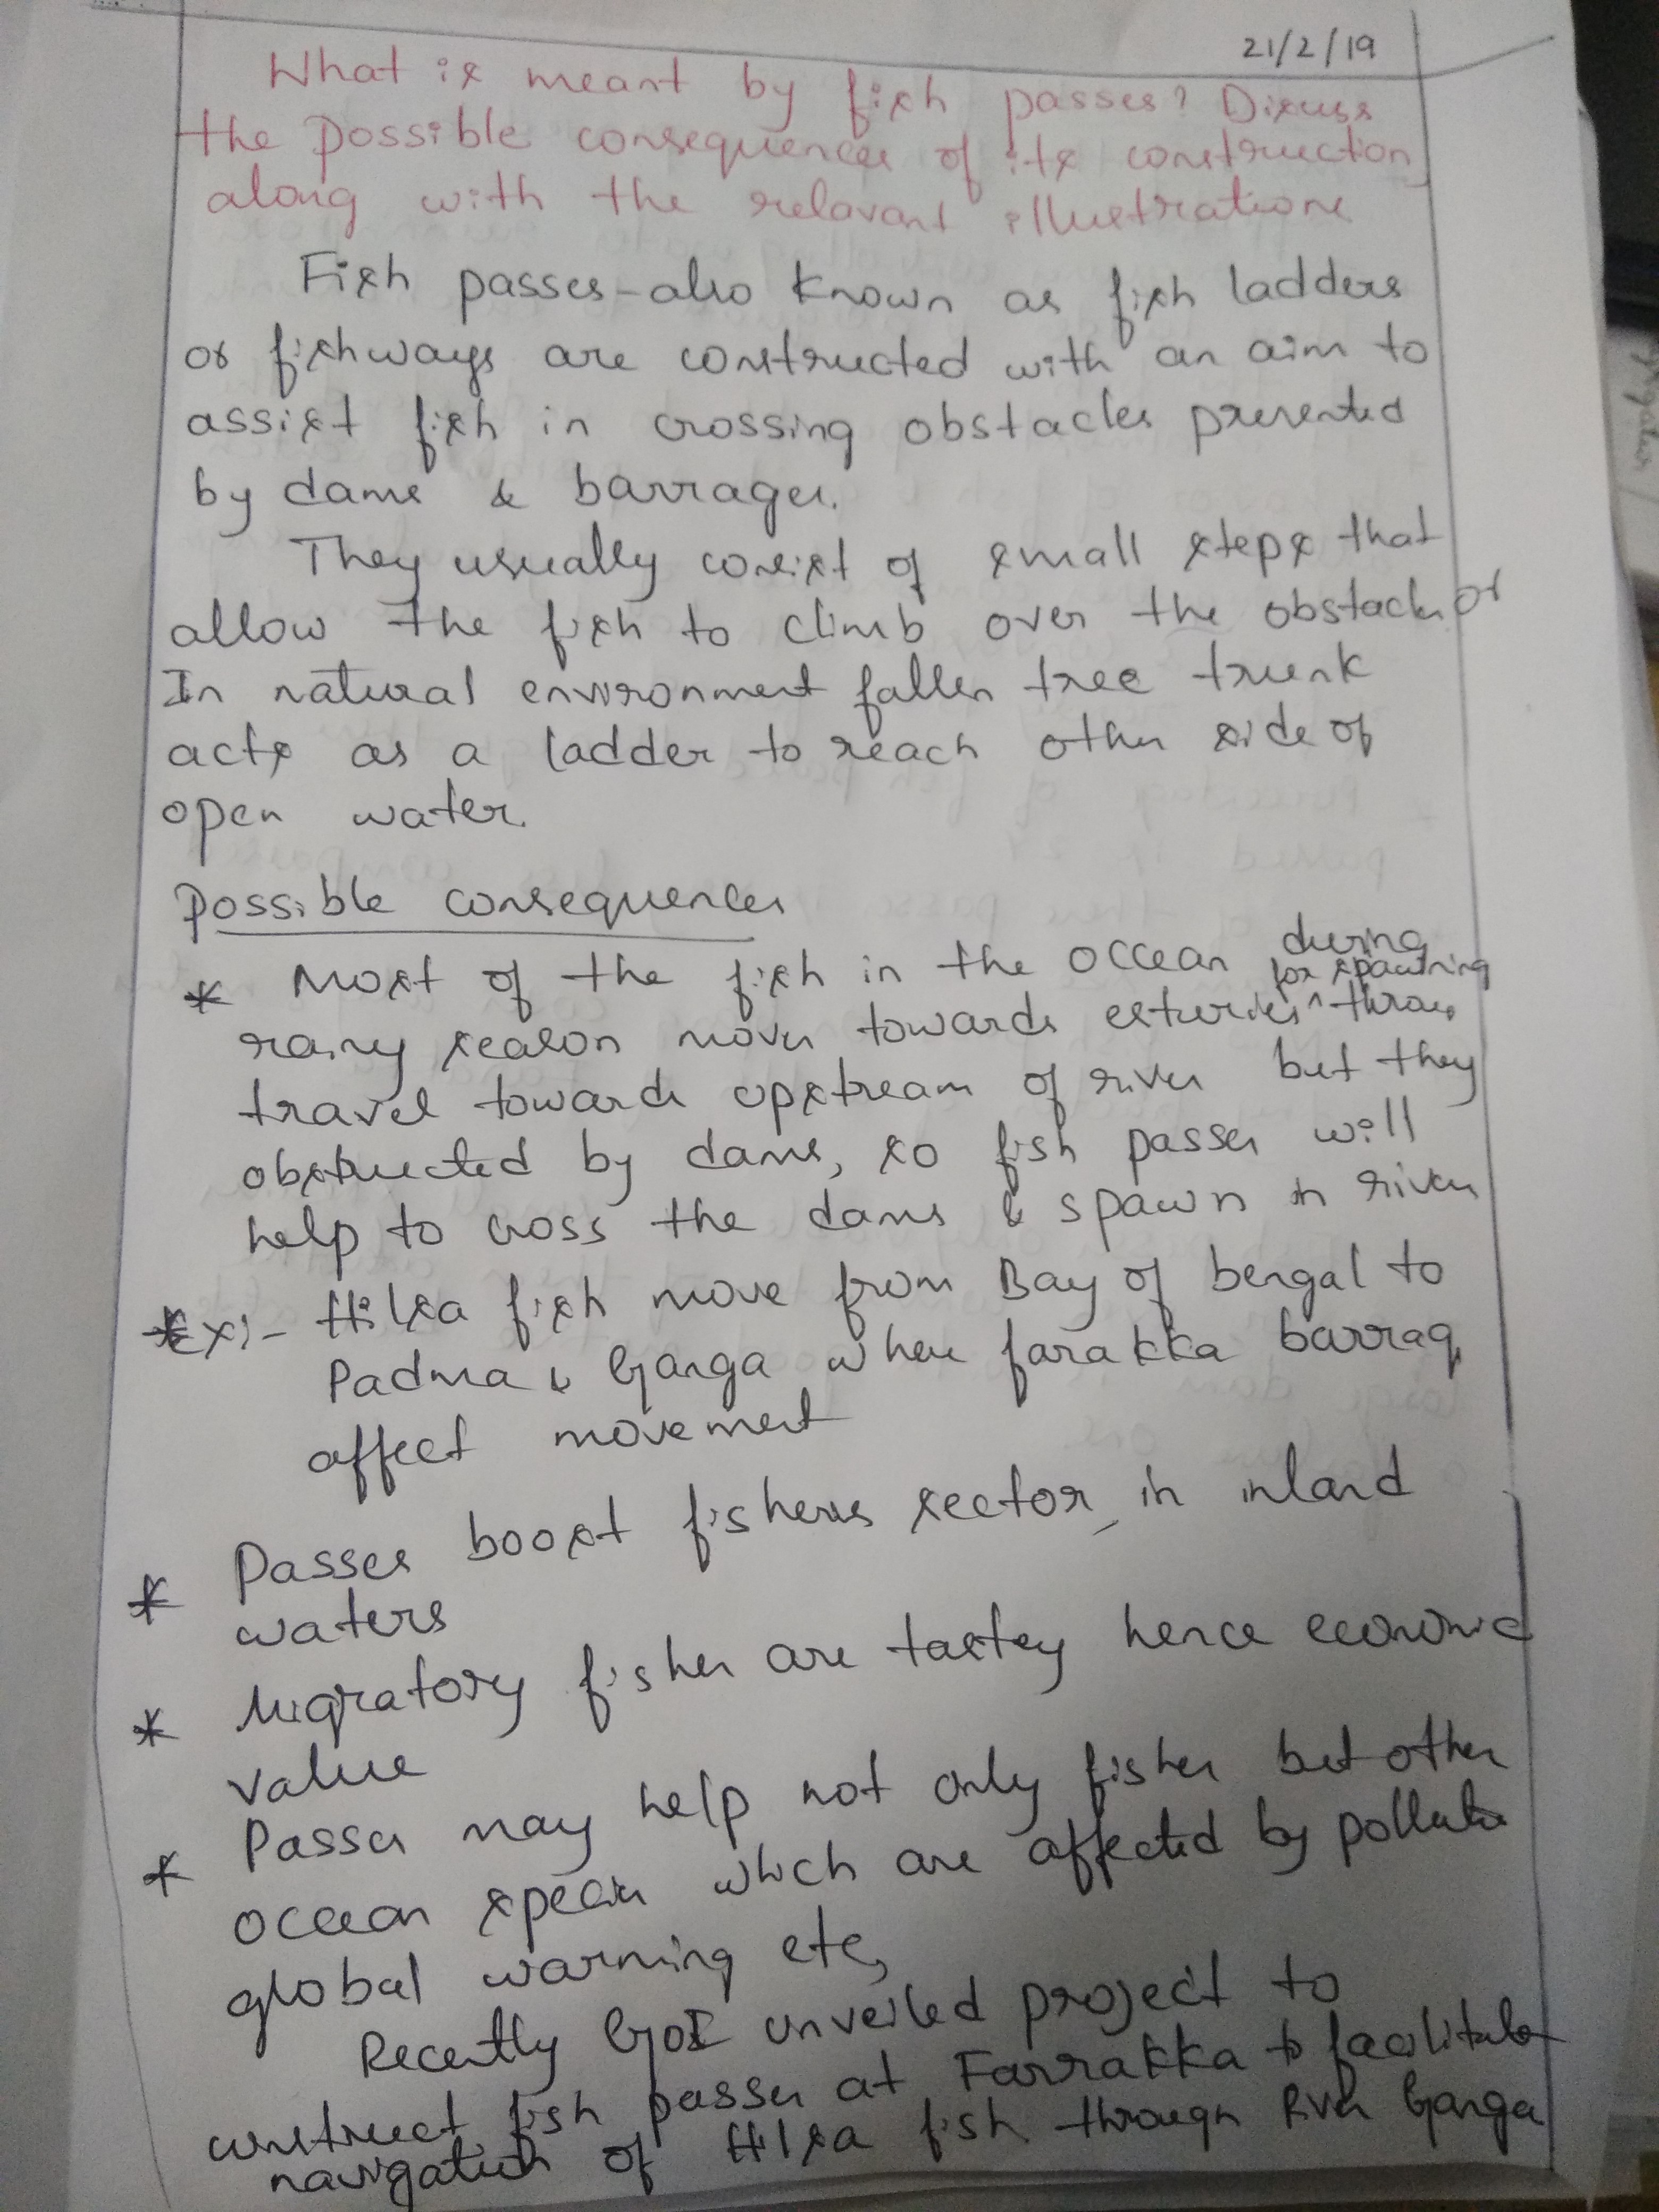 21/2/19
What is meant by fish passes? Discuss
the possible consequences of its construction
along with the relavant illustrations
Fish passes - also known as fish ladders
or fishways are constructed with an aim to
assist fish in crossing obstacles presented
by dams & barrages.
They usually consist of small steps that
allow the fish to climb over the obstacles or
In natural environment fallen tree trunk
acts as a ladder to reach other side of
open water.
Possible consequences
* Most of the fish in the occean during
for spawning
rainy season moves towards esturies ^
travel towards upstream of river but they
obstructed by dams, so fish passes will
help to cross the dams & spawn in rivers
* Ex:- Hilsa fish move from Bay of bengal to
Padma & Ganga where farakka barrag
affect movement
* Passes boost fisheries sector in inland
waters
* Migratory fishes are tastey hence economic
value
* Passes may help not only fishes but other
ocean species which are affected by
global warming etc,
Recently GoI unveiled project to
construct fish passes at Farrakka to facilitate
navigation of Hilsa fish through River Ganga